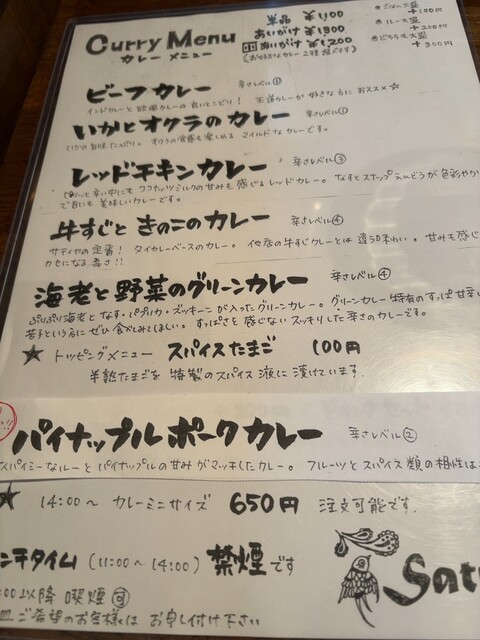 Curry Menu
カレーメニュー
単品 ¥1,100
あいがけ ¥1,300
あいがけ ¥1,200
(お好きなカレー2種選べます)
ごはん大盛
+100円
ルー大盛
+200円
どちらも大盛
+300円
ビーフカレー 辛さレベル①
インドカレーと欧風カレーの良いとこどり! 王道カレーが好きな方におススメ☆
いかとオクラのカレー 辛さレベル①
いかの旨味たっぷり。オクラの食感も楽しめるマイルドなカレーです。
レッドチキンカレー 辛さレベル③
辛い中にもココナッツミルクの甘みも感じるレッドカレー。なすとスナップえんどうが色彩やか
で目にも美味しいカレーです。
牛すじときのこのカレー 辛さレベル④
サティヤの定番! タイカレーベースのカレー。他店の牛すじカレーとは違う味わい。甘みも感じ
クセになる辛さ!!
海老と野菜のグリーンカレー 辛さレベル④
ぷりぷり海老となす・パプリカ・ズッキーニが入ったグリーンカレー。グリーンカレー特有のすっぱ甘辛い
苦手という方にぜひ食べてみてほしい。すっぱさを感じないスッキリした辛さのカレーです。
★ トッピングメニュー スパイスたまご 100円
半熟たまごを特製のスパイス液に漬けています。
パイナップルポークカレー 辛さレベル②
スパイシーなルーとパイナップルの甘みがマッチしたカレー。フルーツとスパイス類の相性は
★ 14:00〜 カレーミニサイズ 650円 注文可能です.
ンチタイム (11:00〜14:00) 禁煙です
:00以降 喫煙可
皿ご希望のお客様は お申し付け下さい
Sat